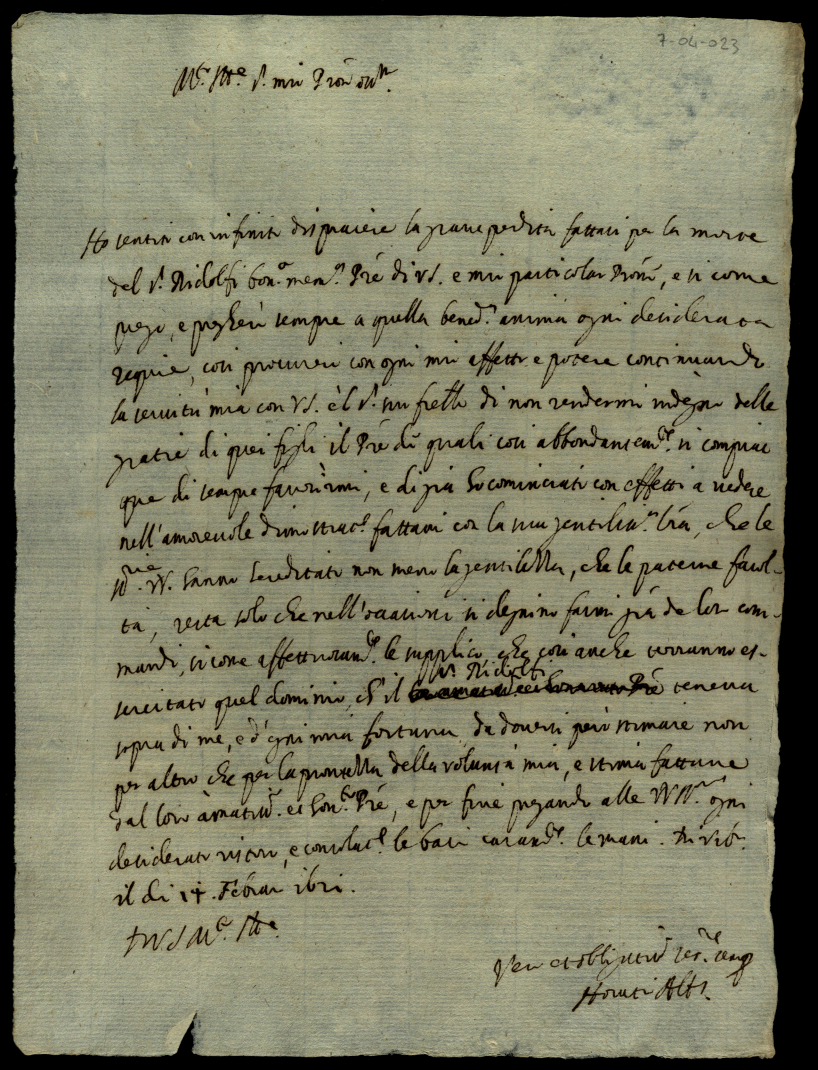 7-04-023
M.to Ill.re S.r mio Pron oss.mo
Ho sentito con infinito dispiacere la grave perdita fattasi per la morte
del S.r Ridolfi bon.a mem.a Pre di VS. e mio particolar Prone, e si come
prego, e pregherò sempre a quella bened.a anima ogni desiderata
requie, così procurerò con ogni mio affetto e potere continuando
la servitù mia con VS. e'l S.r suo frello di non rendermi indegno delle
gratie di quei figli il Pre di quali così abbondantem.te si compiac
que di sempre favorirmi, e di già ho cominciato con effetti a vedere
nell'amorevole dimostrac.e fattami con la sua gentiliss.a lra, che le
SS.rie VV. hanno hereditato non meno la gentilezza, che le paterne facol-
tà, resta solo che nell'occasioni si degnino farmi già de loro com-
mandi, si come affettuosam.te le supplico, che così anche verranno es-
sercitato quel dominio, ch'il S.r Ridolfi teneva
sopra di me, e d'ogni mia fortuna, da doversi però stimare non
per altro che per la prontezza della volontà mia, e stima fattane
dal loro amatiss.o et hon.to Pre, e per fine pregando alle VV.SS. ogni
desiderato ristoro, e consolat.e le bacio caram.te le mani. Di Urb.o
il dì 14 Febraro
D VS M.to Ill.re
Ser.re et obligatiss.o
Horatio Alb.i